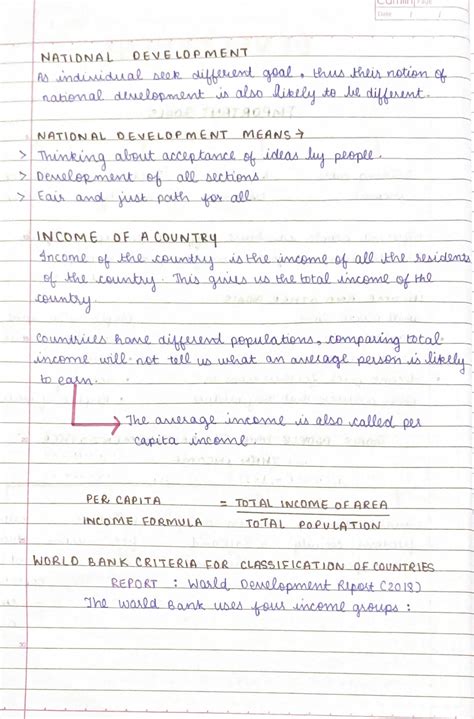 Camlin Page
Date / /
NATIONAL DEVELOPMENT
As individual seek different goal, thus their notion of
national development is also likely to be different.
NATIONAL DEVELOPMENT MEANS →
> Thinking about acceptance of ideas by people.
> Development of all sections.
> Fair and just path for all
INCOME OF A COUNTRY
Income of the country is the income of all the residents
of the country. This gives us the total income of the
country.
Countries have different populations, comparing total
income will not tell us what an average person is likely
to earn.
The average income is also called per
capita income.
PER CAPITA = TOTAL INCOME OF AREA
INCOME FORMULA TOTAL POPULATION
WORLD BANK CRITERIA FOR CLASSIFICATION OF COUNTRIES
REPORT : World Development Report (2018)
The World Bank uses four income groups :